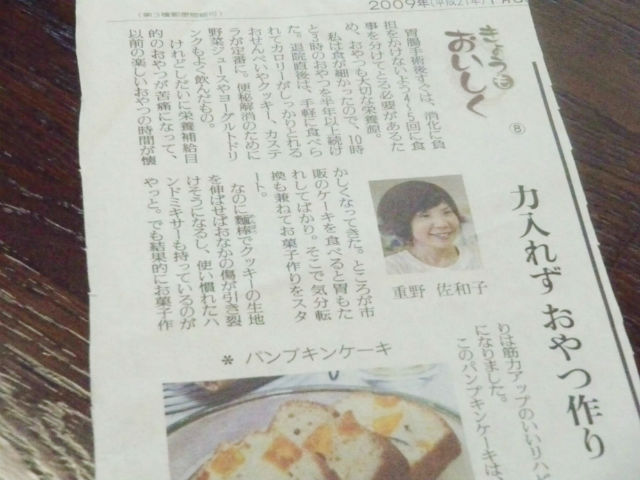 (第3種郵便物認可)
2009年(平成21年)
きょうも
おいしく
⑧
力入れず おやつ作り
胃腸手術後すぐは、消化に負
担をかけないよう4、5回に食
事を分けてとる必要があるた
め、おやつも大切な栄養源。
私は食が細かったので、10時
と3時のおやつを半年以上続け
た。退院直後は、手軽に食べら
れてカロリーがしっかりとれる
おせんべいやクッキー、カステ
ラが定番に。便秘解消のために
野菜ジュースやヨーグルトドリ
ンクもよく飲んだもの。
けれどしだいに栄養補給目
的のおやつが苦痛になって、
以前の楽しいおやつの時間が懐
かしくなってきた。ところが市
販のケーキを食べると胃もた
れしてばかり。そこで気分転
換も兼ねてお菓子作りをスタ
ート。
なのに麺棒でクッキーの生地
を伸ばせばおなかの傷が引き裂
けそうになるし、使い慣れたハ
ンドミキサーも持っているのが
やっと。でも結果的にお菓子作
りは筋力アップのいいリハビ
になりました。
このパンプキンケーキは、
重野 佐和子
* パンプキンケーキ